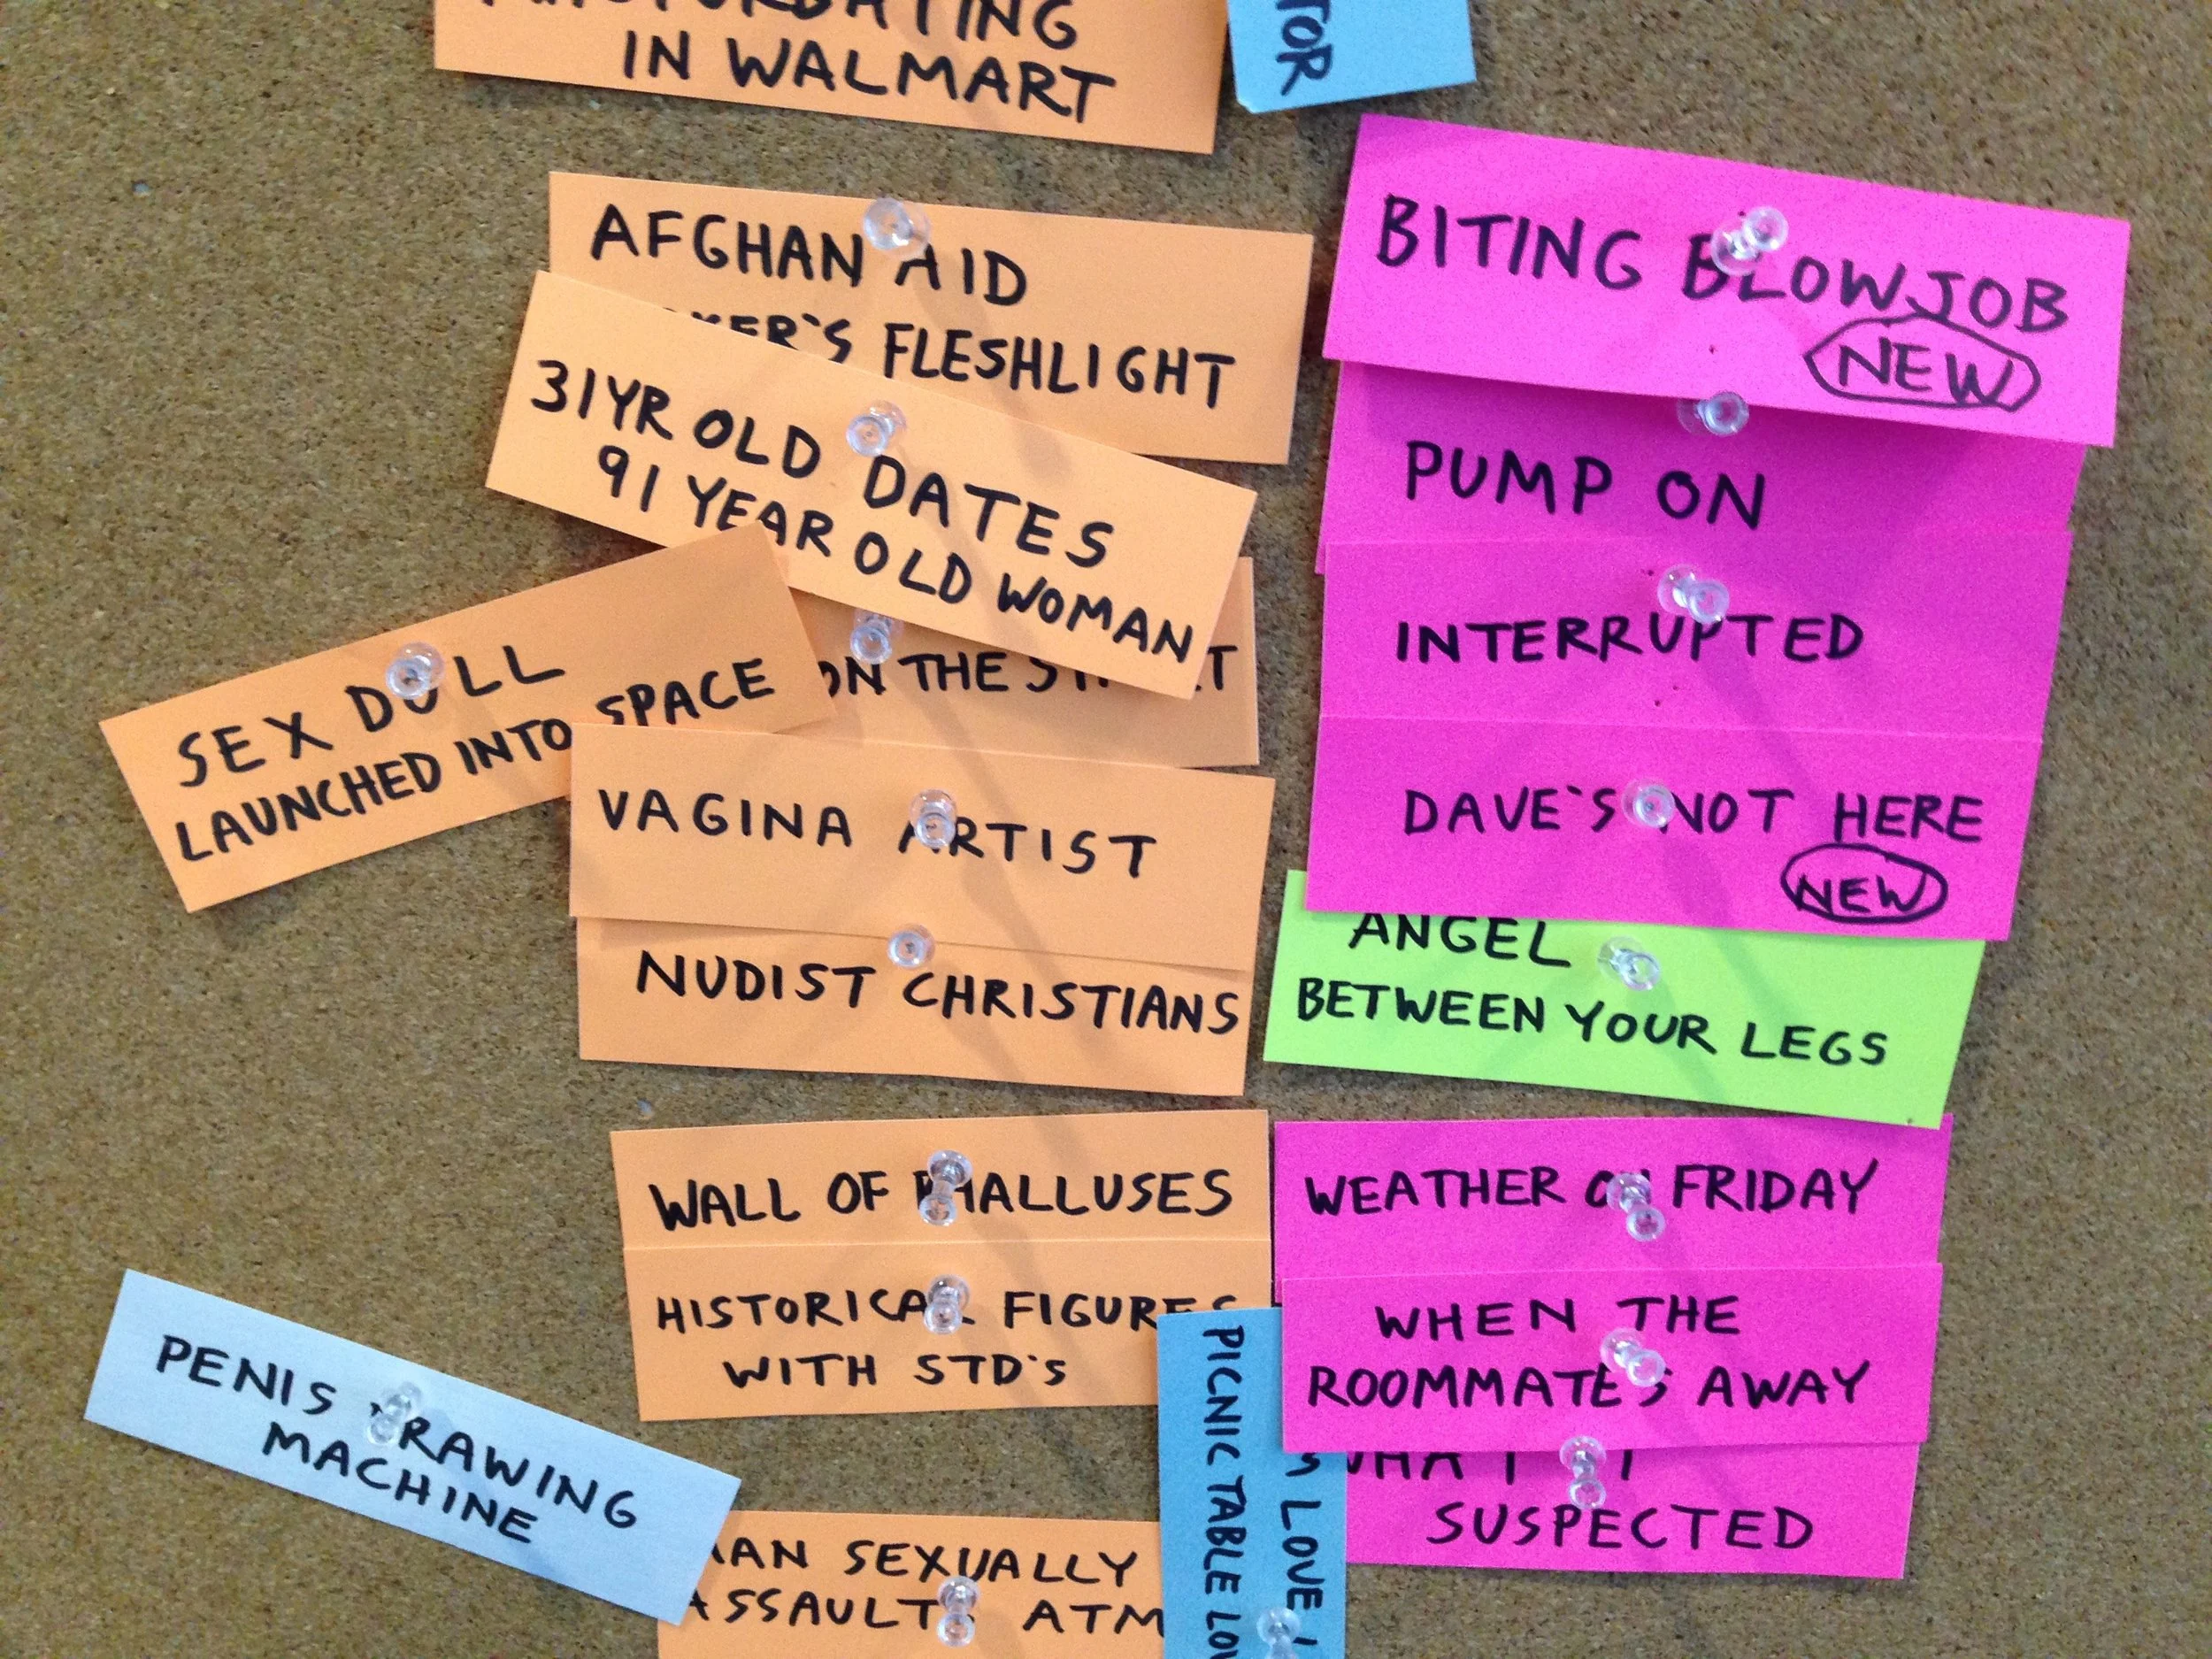 IN WALMART
TOR
AFGHAN AID
FLESHLIGHT
31YR OLD DATES
91 YEAR OLD WOMAN
ON THE
SEX DOLL
LAUNCHED INTO SPACE
VAGINA ARTIST
NUDIST CHRISTIANS
WALL OF PHALLUSES
HISTORICAL FIGURES
WITH STD'S
PENIS DRAWING
MACHINE
SEXUALLY
ASSAULTS ATM
PICNIC TABLE
LOVE
BITING BLOWJOB
NEW
PUMP ON
INTERRUPTED
DAVE'S NOT HERE
NEW
ANGEL
BETWEEN YOUR LEGS
WEATHER ON FRIDAY
WHEN THE
ROOMMATE'S AWAY
WHAT I
SUSPECTED